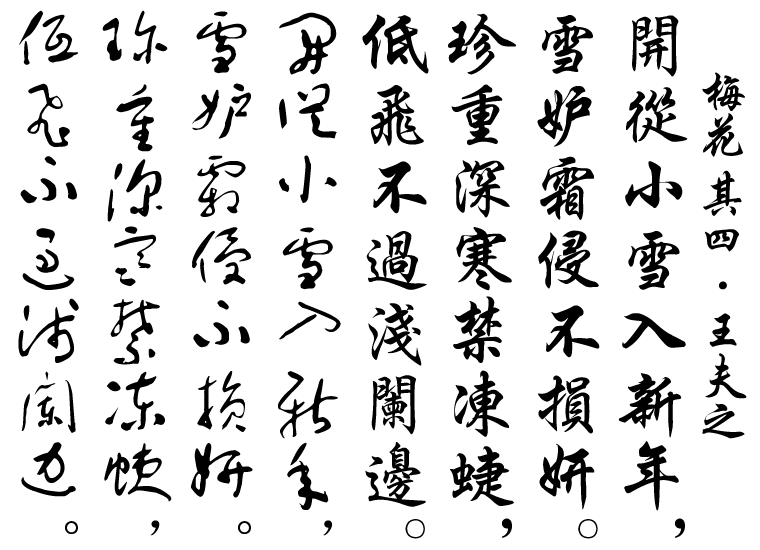 梅花 其四·王夫之
開從小雪入新年，
雪妒霜侵不損妍。
珍重深寒禁凍蜨，
低飛不過淺闌邊。
開從小雪入新年，
雪妒霜侵不損妍。
珍重深寒禁凍蜨，
低飛不過淺闌邊。